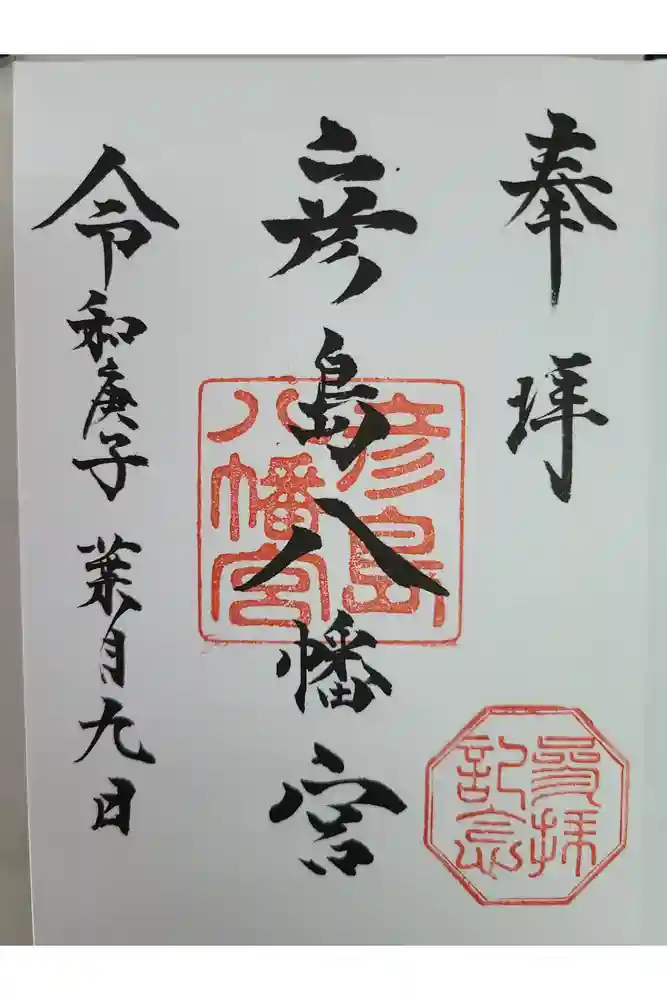 奉拝
彦島八幡宮
令和庚子 葉月九日
彦島
八幡宮
参拝
記念